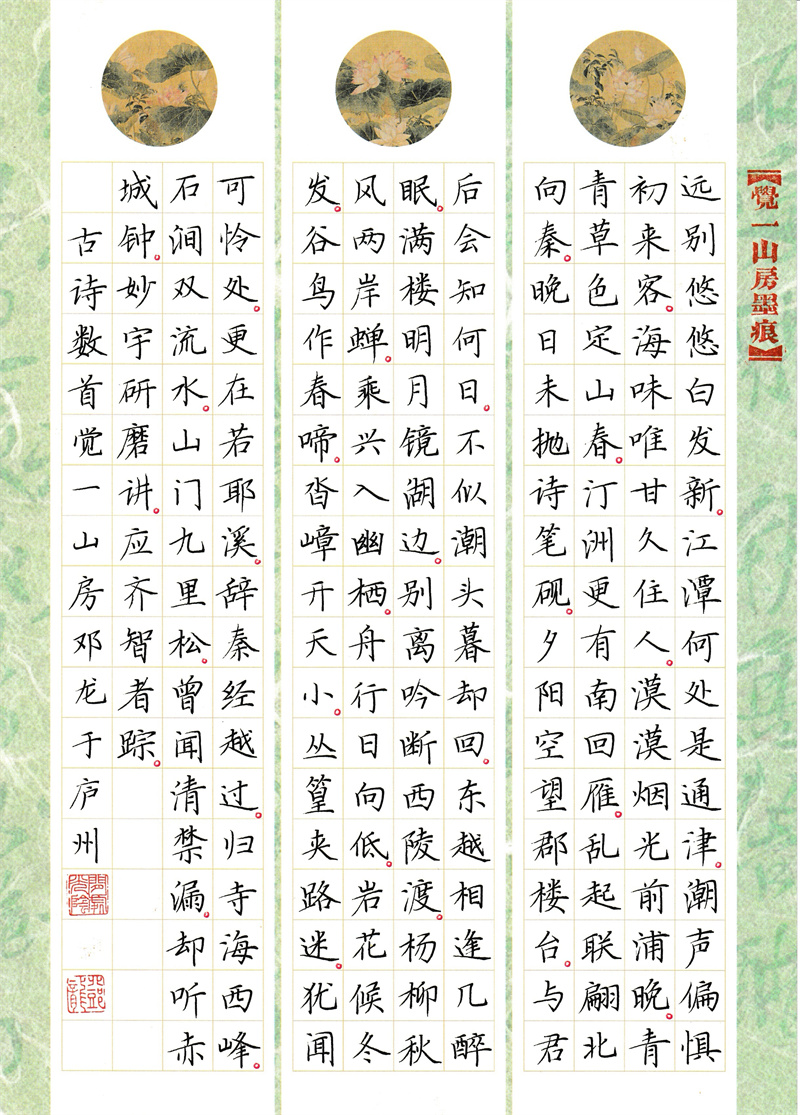 【覺一山房墨痕】
远别悠悠白发新。江潭何处是通津。潮声偏惧
初来客。海味唯甘久住人。漠漠烟光前浦晚。青
青草色定山春。汀洲更有南回雁。乱起联翩北
向秦。晚日未抛诗笔砚。夕阳空望郡楼台。与君
后会知何日。不似潮头暮却回。东越相逢几醉
眠。满楼明月镜湖边。别离吟断西陵渡。杨柳秋
风两岸蝉。乘兴入幽栖。舟行日向低。岩花候冬
发。谷鸟作春啼。沓嶂开天小。丛篁夹路迷。犹闻
可怜处。更在若耶溪。辞秦经越过。归寺海西峰。
石涧双流水。山门九里松。曾闻清禁漏。却听赤
城钟。妙宇研磨讲。应齐智者踪。
古诗数首觉一山房邓龙于庐州